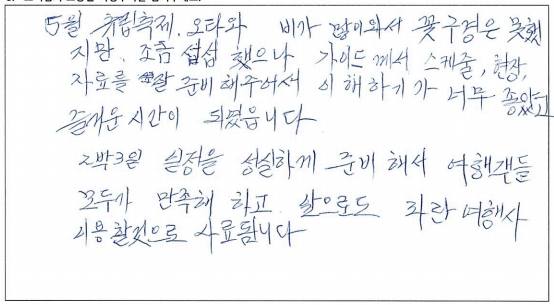 5월 튜립축제. 오타와 비가 많이와서 꽃구경은 못했
지만. 조금 섭섭 했으나 가이드 께서 스케줄, 현장,
자료를 잘 준비해주어서 이해하기가 너무 좋았고
즐거운 시간이 되였읍니다
2박3일 일정을 성실하게 준비해서 여행객들
모두가 만족해 하고. 앞으로도 파란여행사
이용할것으로 사료됩니다